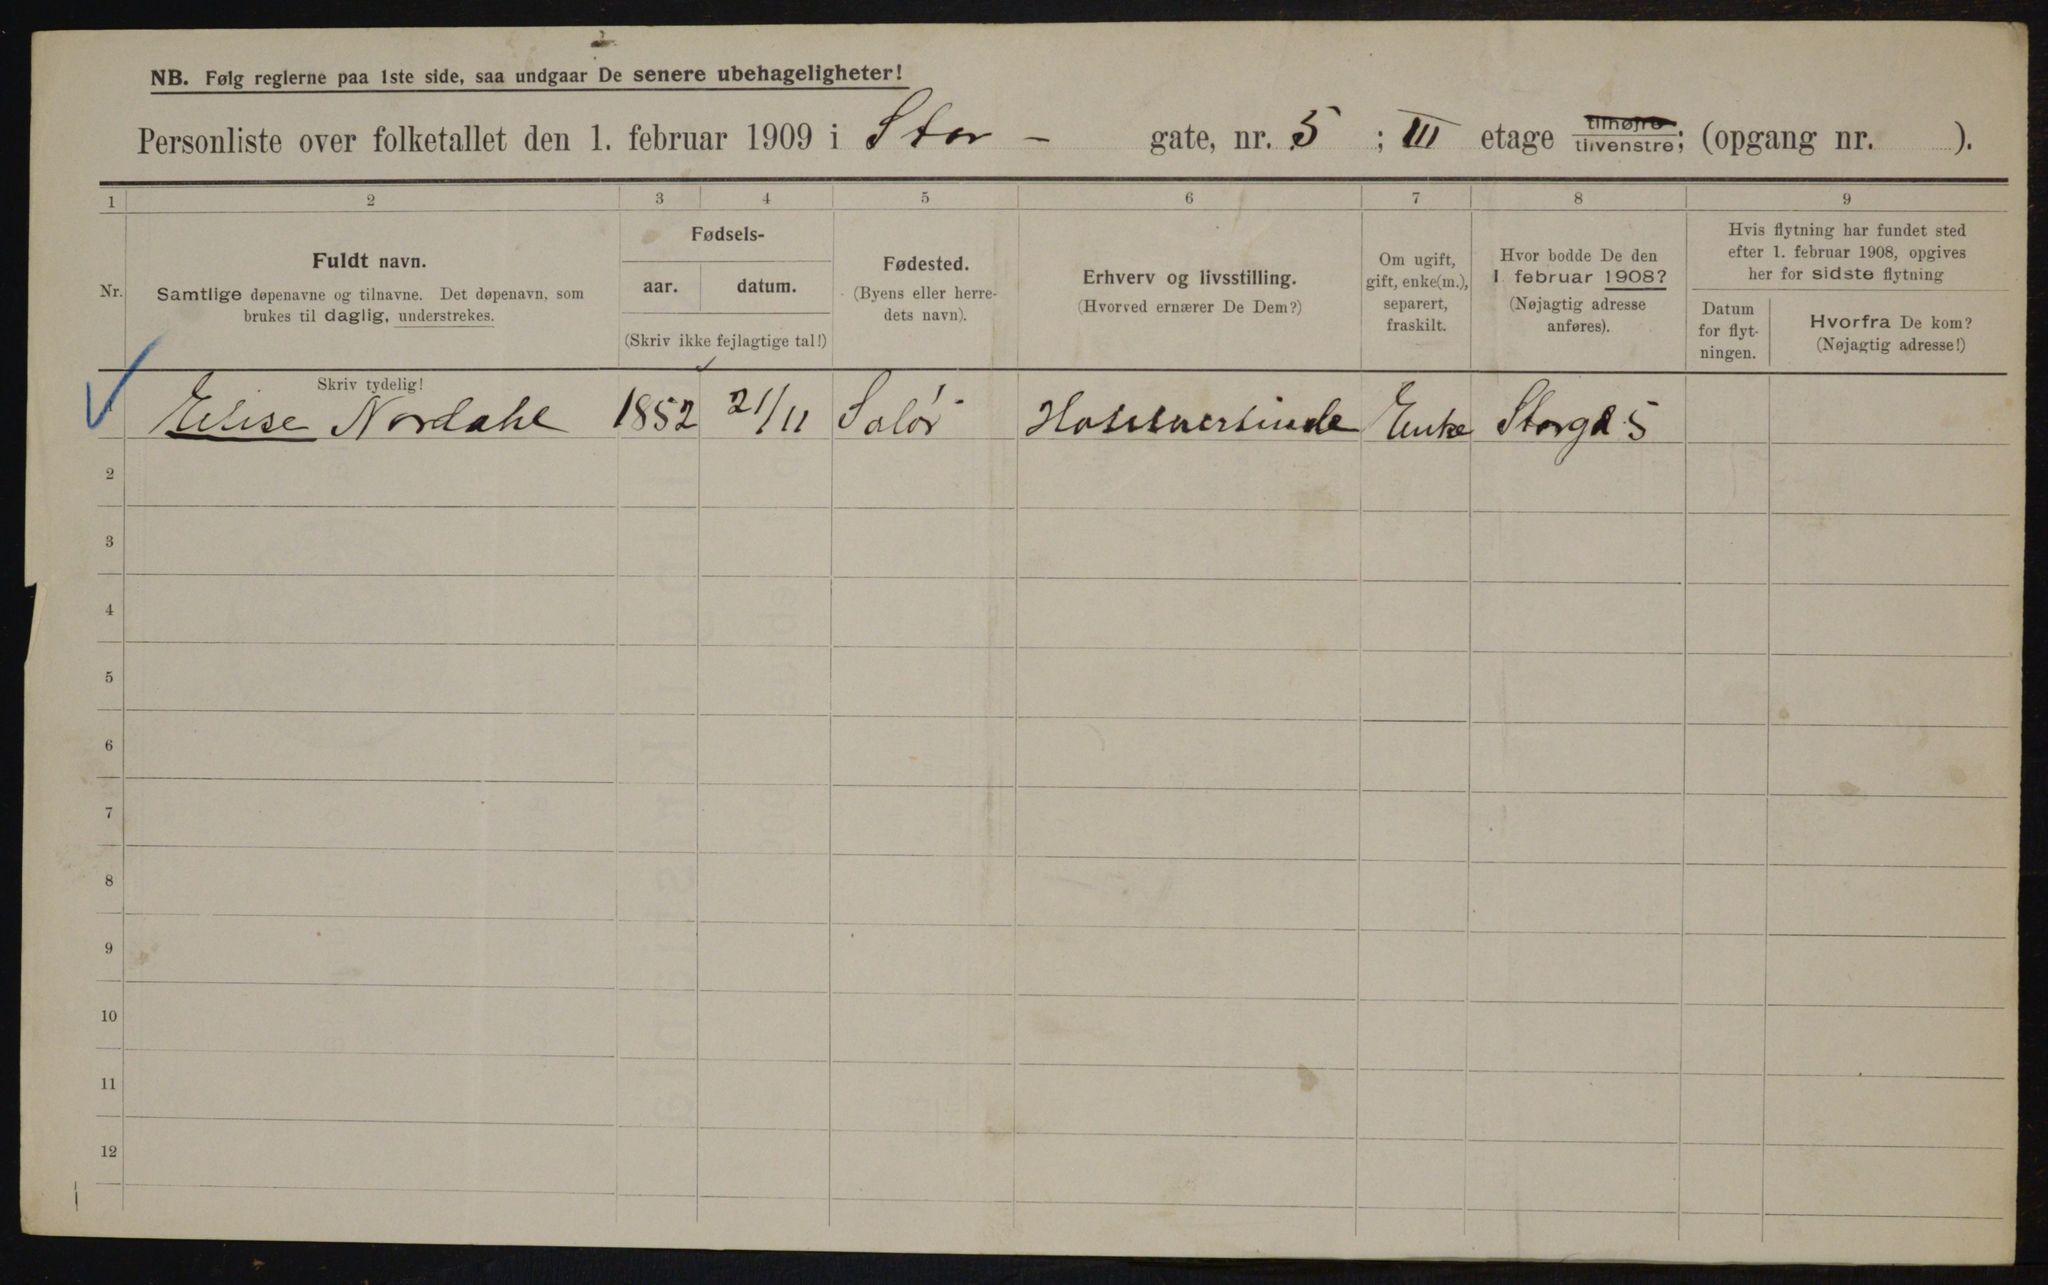 NB. Følg reglerne paa 1ste side, saa undgaar De senere ubehageligheter!
Personliste over folketallet den 1. februar 1909 i Stor - gate, nr. 5 ; III etage tilhøjre tilvenstre; (opgang nr. ).
1 2 3 4 5 6 7 8 9
Nr.
Fuldt navn.
Samtlige døpenavne og tilnavne. Det døpenavn, som
brukes til daglig, understrekes.
Fødsels-
aar. datum.
(Skriv ikke fejlagtige tal!)
Fødested.
(Byens eller herre-
dets navn).
Erhverv og livsstilling.
(Hvorved ernærer De Dem?)
Om ugift,
gift, enke(m.),
separert,
fraskilt.
Hvor bodde De den
1 februar 1908?
(Nøjagtig adresse
anføres).
Hvis flytning har fundet sted
efter 1. februar 1908, opgives
her for sidste flytning
Datum
for flyt-
ningen.
Hvorfra De kom?
(Nøjagtig adresse!)
Skriv tydelig!
1 Elise Nordahl 1852 21/11 Solør Enke Storgd 5
2
3
4
5
6
7
8
9
10
11
12